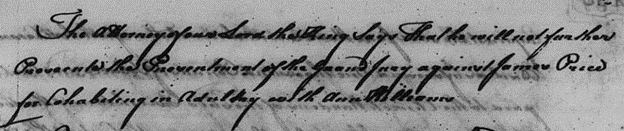 The Attorney of our Lord the King Says That he will not further
Prosecute the Presentment of the Grand Jury against James Price
for Cohabiting in Adultry with Ann Williams